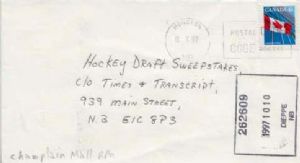 CANADA
POSTAL
CODE
Hockey Draft Sweepstakes,
c/o Times & Transcript,
939 Main Street,
N.B E1C 8P3
262609
1997 10 10
DIEPPE
NB
Champlain Mall RPO